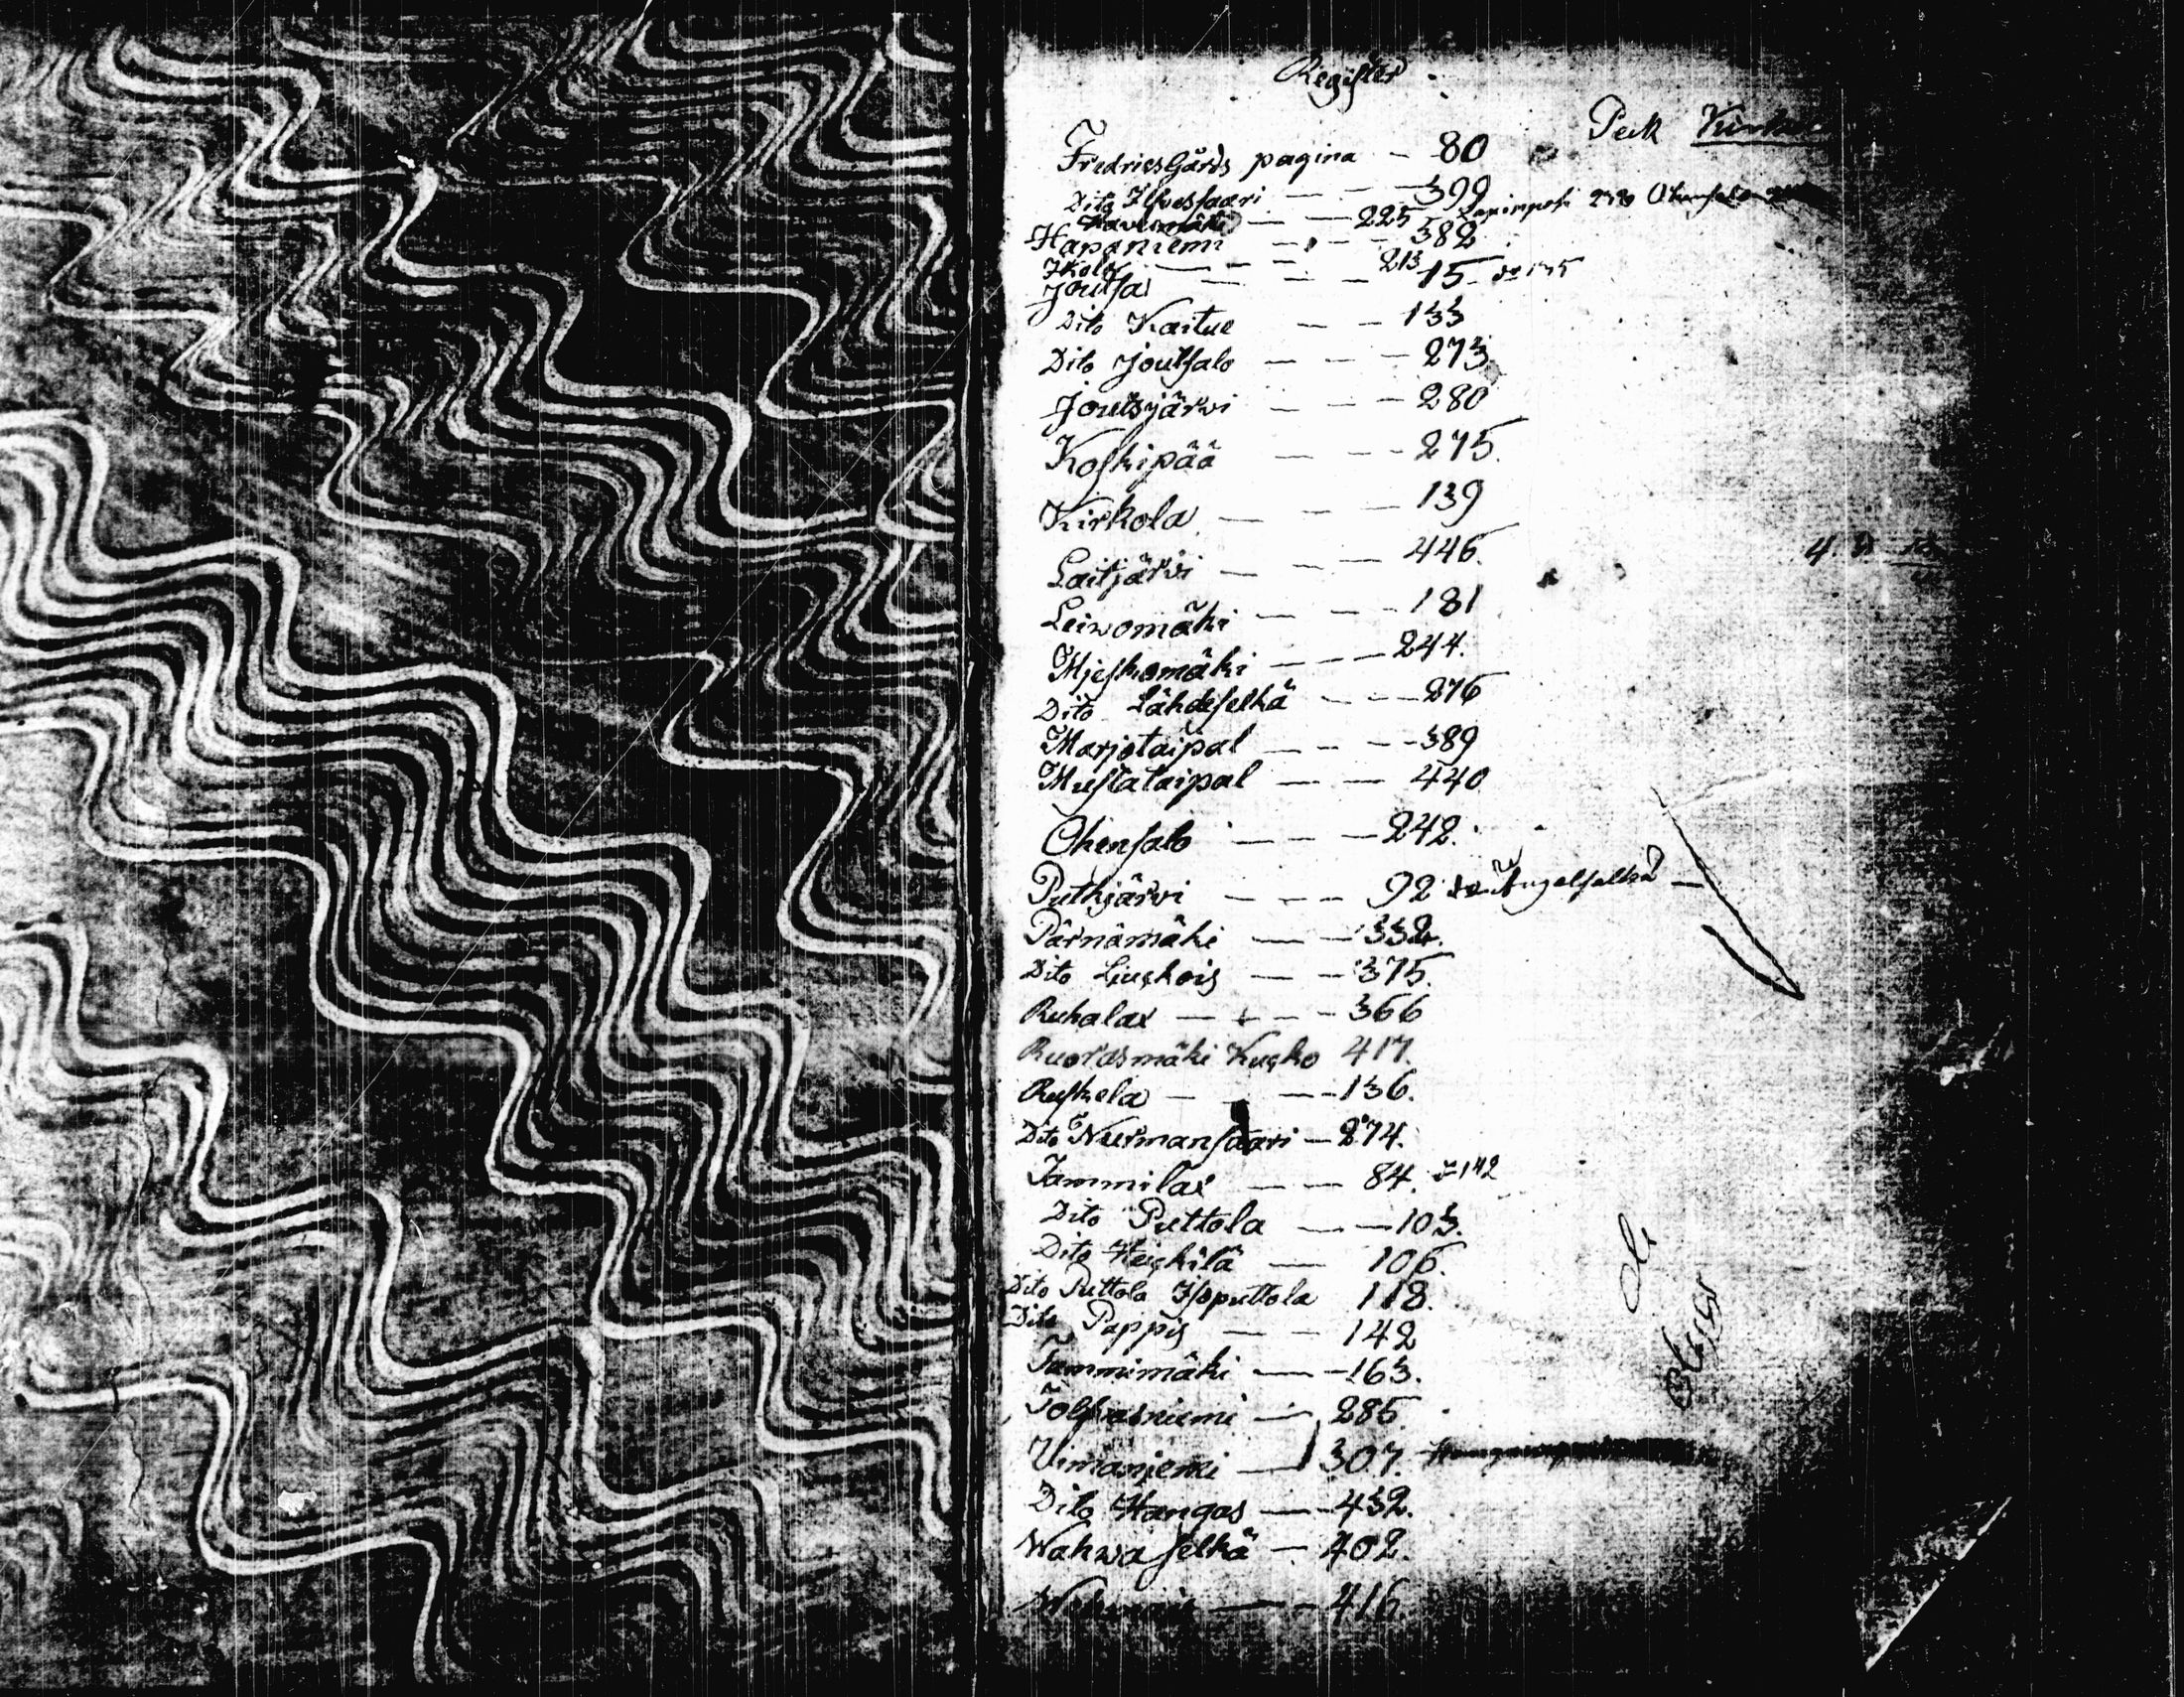 Register
Peck
Fredricsgårds pagina — 80
Dito Ilvessaari — — 399
Havumäki — — 225 Lapinpohi
Hapaniemi — — 382
Ikola — — — 213
Joutsa — — 15. 
Dito Kaitue — — 133
Dito Joutsalo — — — 273
Joutsjärvi — — — 280
Koskipää — — — 275.
Kirkola — — — 139
Laitjärvi — — — 446.
Leivomäki — — — 181
Mieskomäki — — — 244.
Dito Lähdeselkä — — — 276
Marjotaipal — — — 389
Mustataipal — — 440
Ohensalo — — — 242.
Putkjärvi — — — 92 Ängelselkä —
Pärnämäki — — 332.
Dito Liuckois — — 375.
Ruhalax — — — 366
Ruorasmäki Kucko 417.
Ruskela — — — 136.
Dito Nurmansaari — 274.
Tammilax — — 84. 142
Dito Puttola — — 103.
Dito Heickilä — 106.
Dito Puttola Isoputtola 118.
Dito Pappis — — 142
Tammimäki — — 163.
Tolvasniemi — 285.
Uimaniemi — 307.
Dito Hangas — 432.
Wahwaselkä — 402.
— — 416.